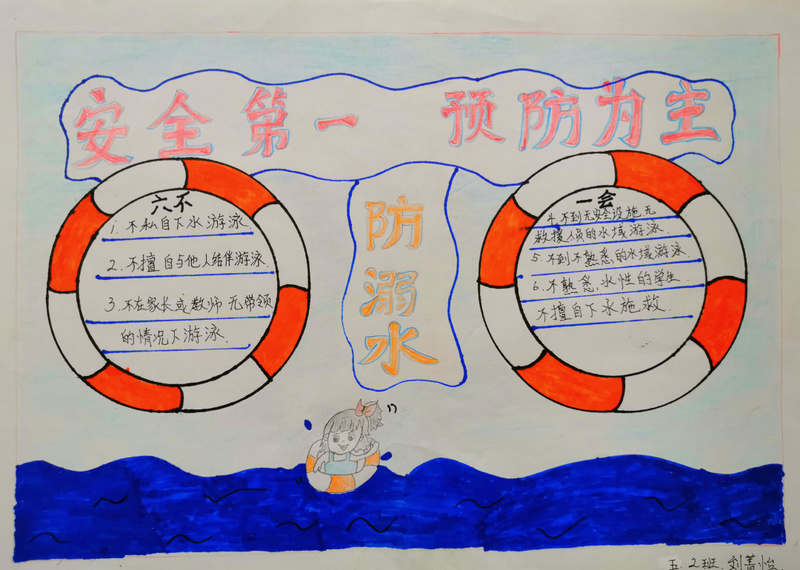 安全第一 预防为主
防溺水
六不
1. 不私自下水游泳
2. 不擅自与他人结伴游泳
3. 不在家长或教师无带领
的情况下游泳.
一会
4. 不到无安全设施无
救援人员的水域游泳.
5. 不到不熟悉的水域游泳
6. 不熟悉.水性的学生.
不擅自下水施救.
五.2班.刘菁怡